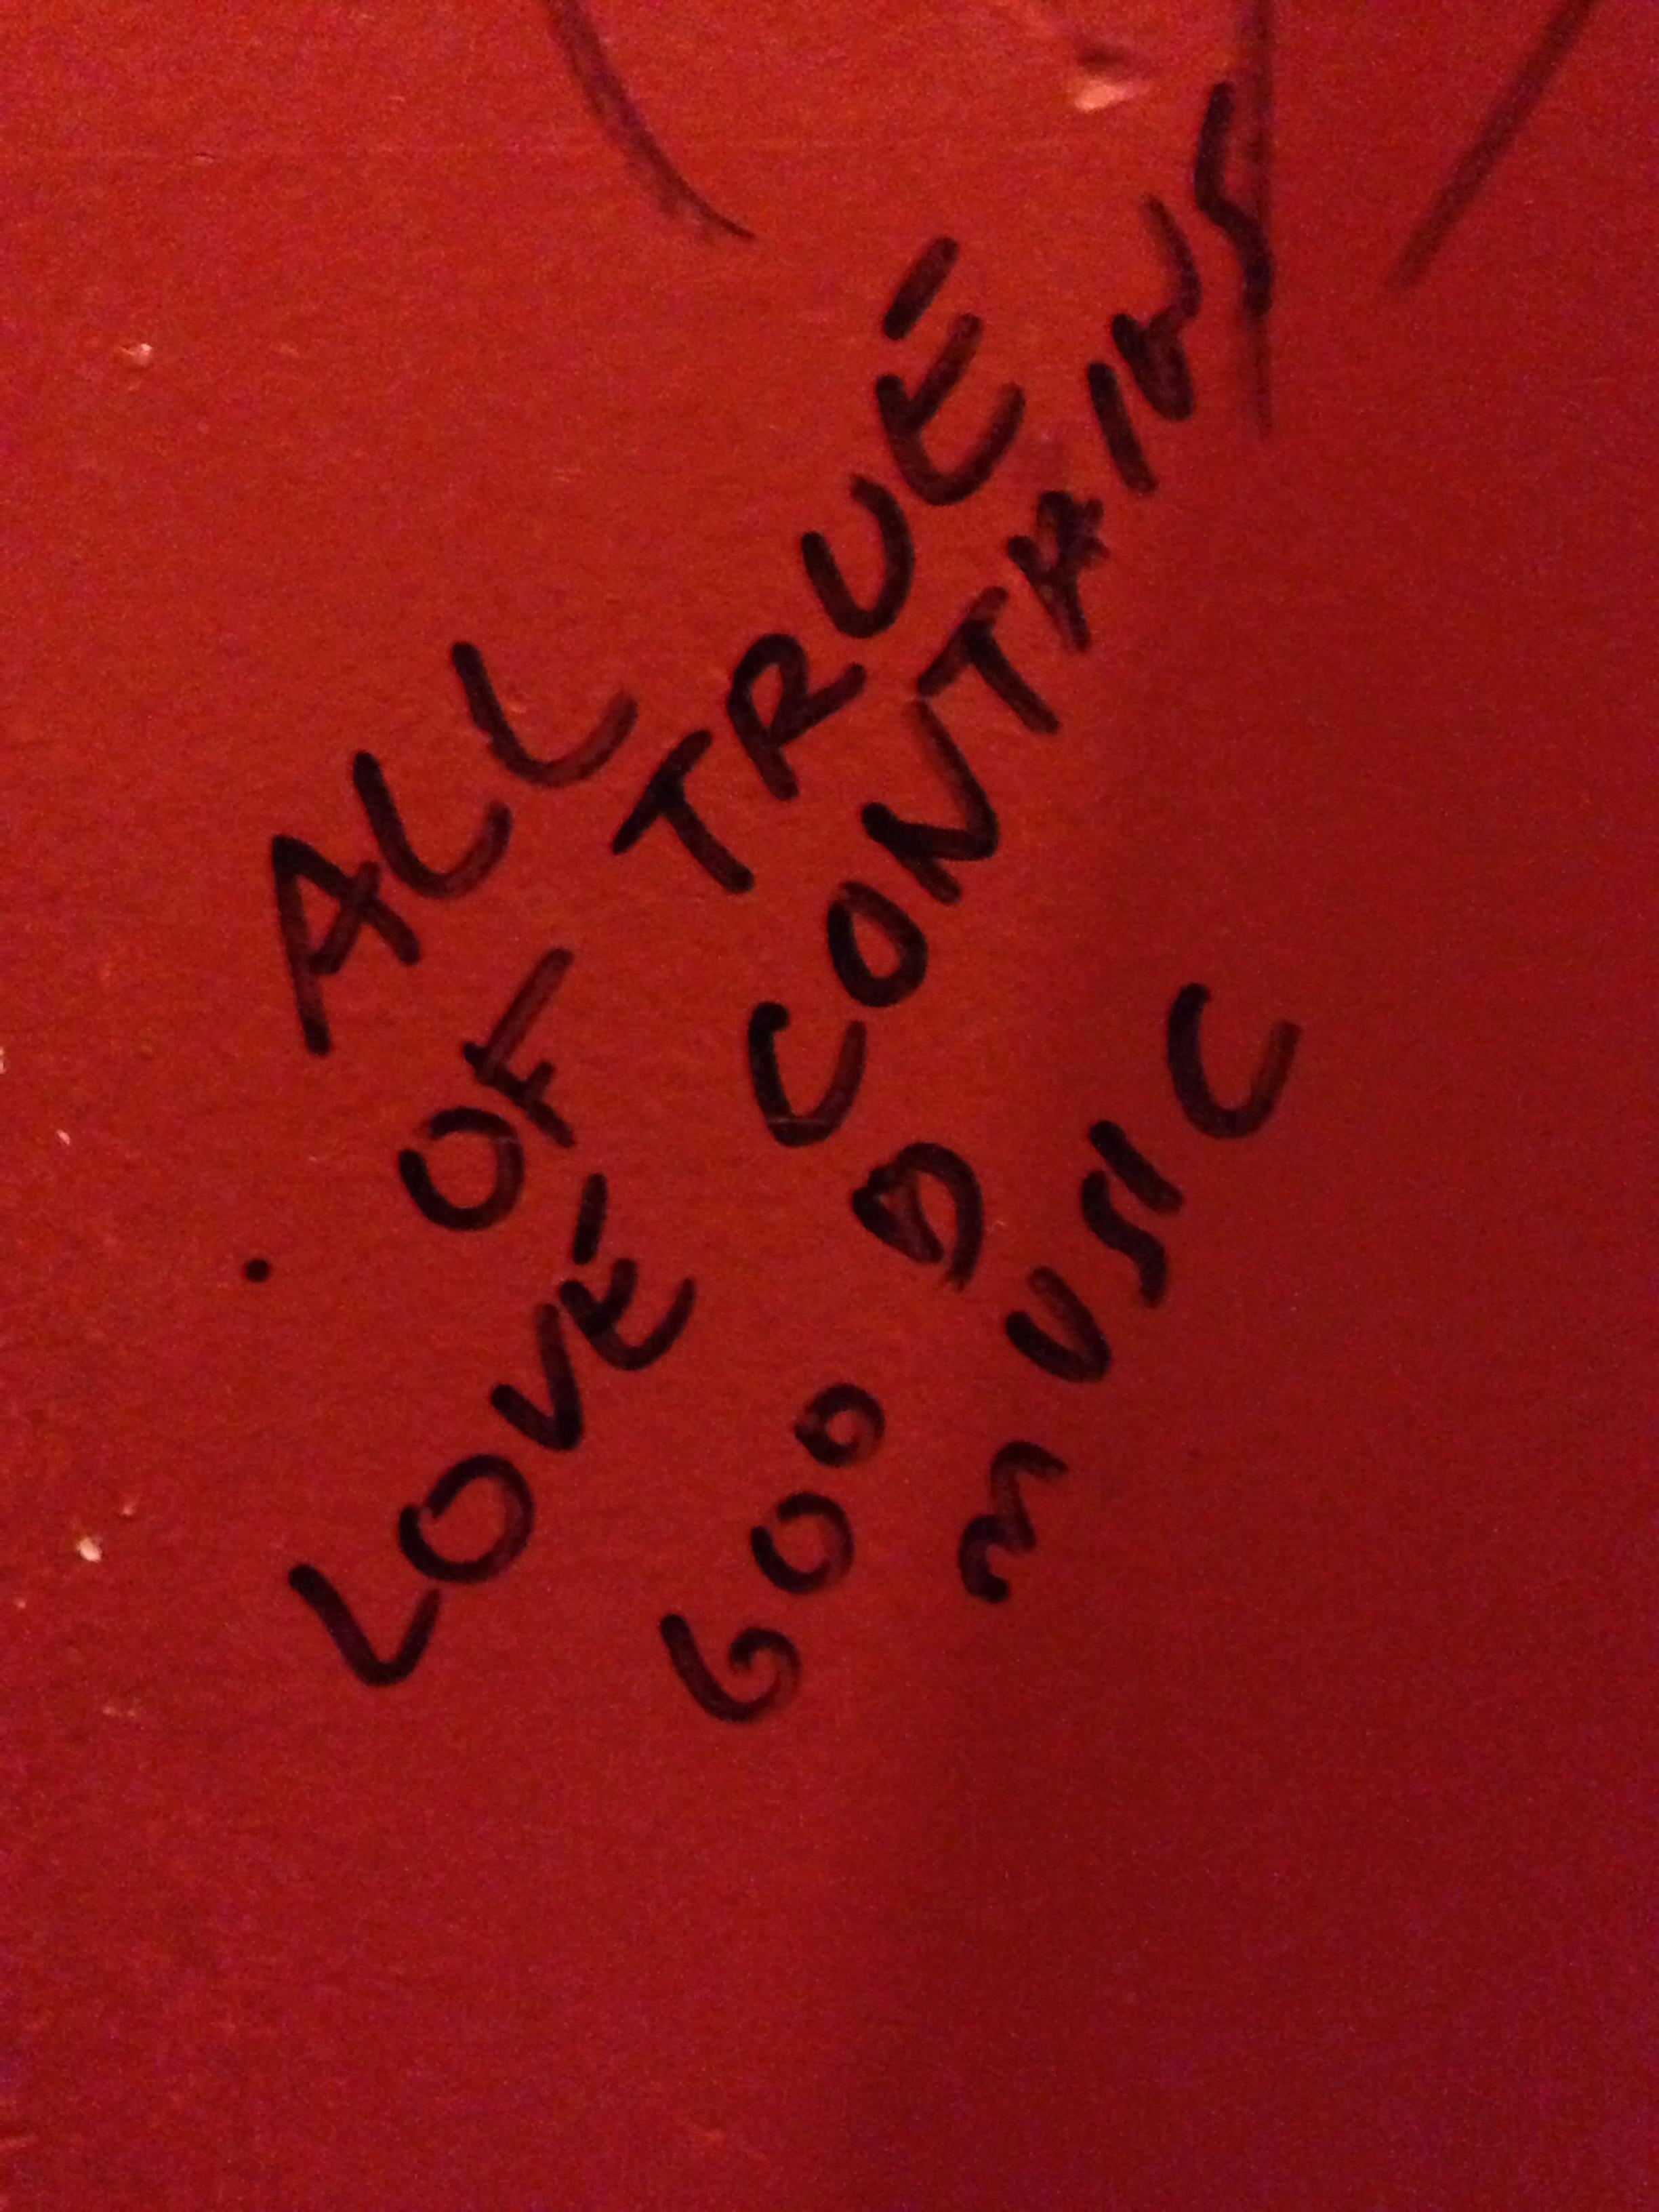 ALL
OF TRUE
LOVE CONTAINS
GOOD
MUSIC